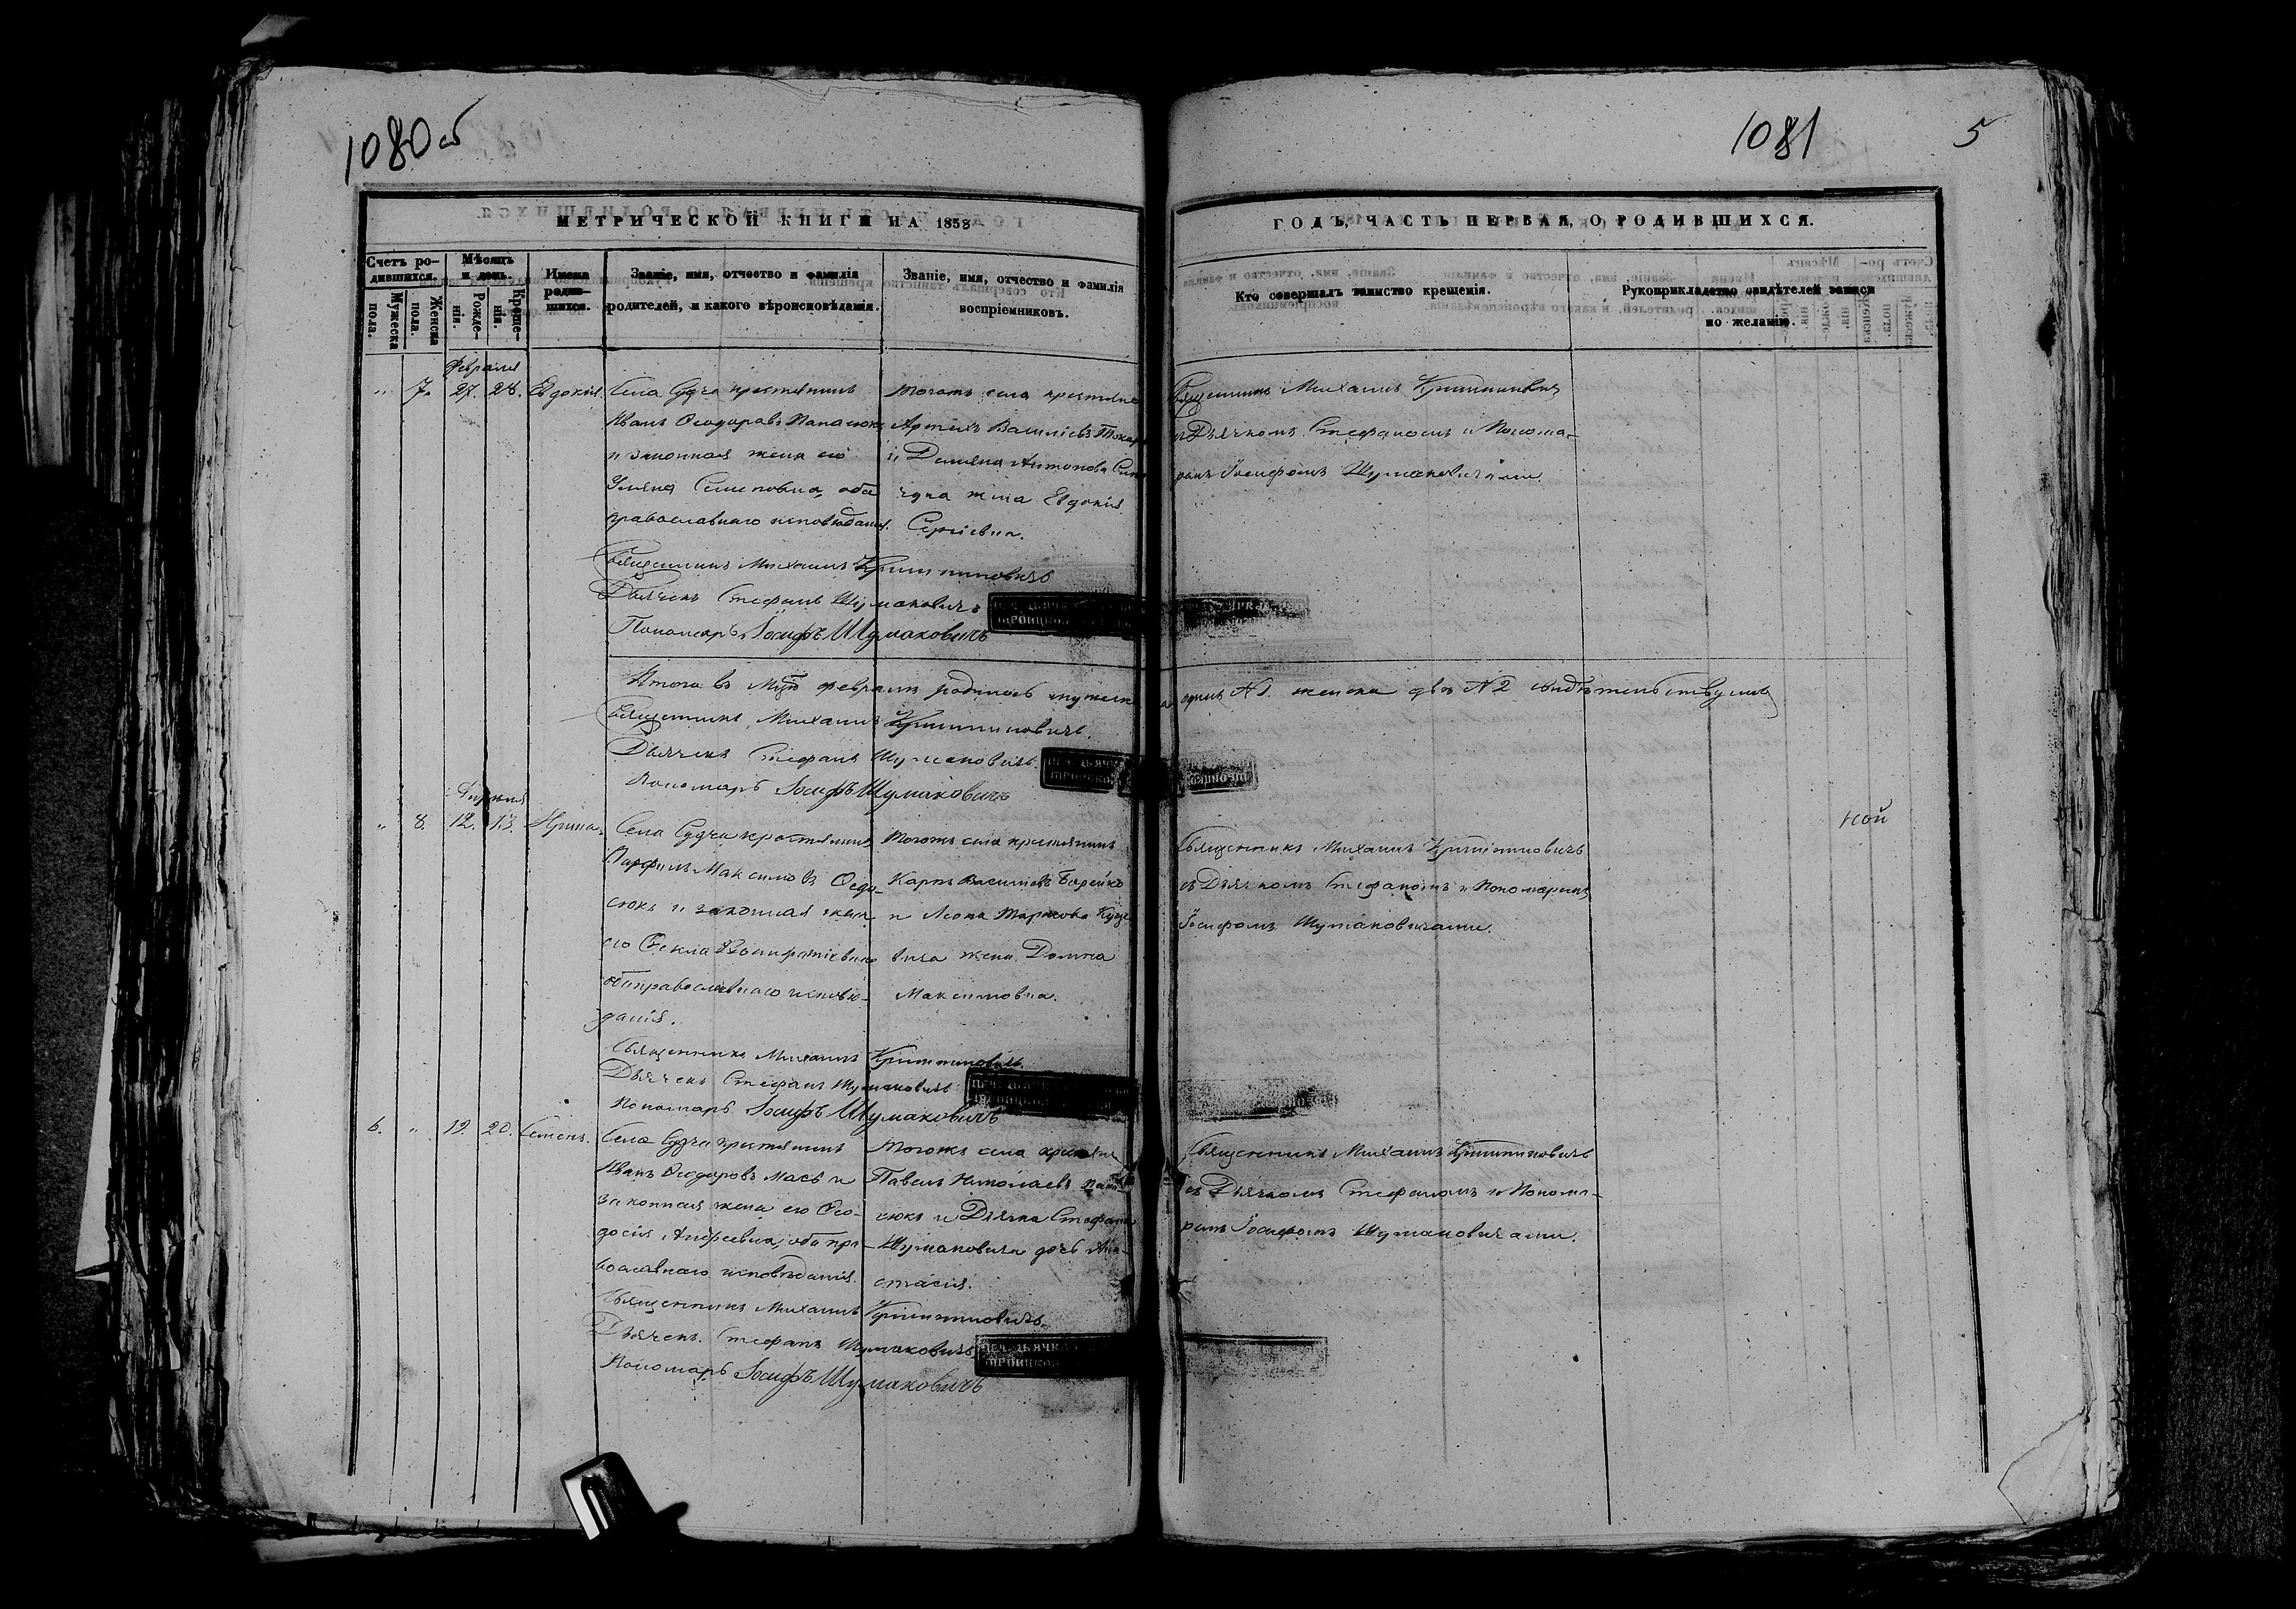 1080об
1081
5
МЕТРИЧЕСКОЙ КНИГИ НА 1858
ГОДЪ, ЧАСТЬ ПЕРВАЯ, О РОДИВШИХСЯ.
Счетъ ро-
дившихся.
Мужеска
пола.
Женска
пола.
Мѣсяцъ
и день.
Рожде-
нія.
Креще-
нія.
Имена
родив-
шихся.
Званіе, имя, отчество и фамилія
родителей, и какого вѣроисповѣданія.
Званіе, имя, отчество и фамилія
воспріемниковъ.
Кто совершалъ таинство крещенія.
Рукоприкладство свидѣтелей записи
по желанію.
Февраля
" 7. 27. 28. Евдокія.
Села Судча крестьянинъ
Иванъ Ѳеодоровъ Панасюкъ
и законная жена его
Уліяна Семеновна, оба
православнаго исповѣданія.
Тогожъ села крестьяне
Василіевъ
и Даміяна Антонова
жена Евдокія
Сергіевна.
Священникъ Михаилъ
съ Дьячкомъ Стефаномъ и Понома-
ремъ Іосифомъ Шумаковичами.
Священникъ Михаилъ
Дьячекъ Стефанъ Шумаковичъ
Пономарь Іосифъ Шумаковичъ
Итого въ Мцѣ февралѣ родилось мужеска одинъ №1. женска двѣ №2 свидѣтельствуемъ
Священникъ Михаилъ
Дьячекъ Стефанъ Шумаковичъ
Пономарь Іосифъ Шумаковичъ
Апрѣля
" 8. 12. 13. Ирина.
Села Судча крестьянинъ
Парфилъ Максимовъ Ѳедо-
сюкъ и законная жена
его Ѳекла
оба православнаго исповѣ-
данія.
Тогожъ села крестьянинъ
Карпъ Василіевъ Борейко
и Леона Маркова
жена Домна
Максимовна.
Священникъ Михаилъ
съ Дьячкомъ Стефаномъ и Пономаремъ
Іосифомъ Шумаковичами.
ной
Священникъ Михаилъ
Дьячекъ Стефанъ Шумаковичъ
Пономарь Іосифъ Шумаковичъ
6. " 19. 20. Семенъ.
Села Судча крестьянинъ
Иванъ Ѳеодоровъ Мась и
законная жена его Ѳео-
досія Андреевна, оба пра-
вославнаго исповѣданія.
Тогожъ села крестьяне
Павелъ Николаевъ Пана-
сюкъ и Дьячка Стефана
Шумаковича дочь Ана-
стасія.
Священникъ Михаилъ
съ Дьячкомъ Стефаномъ и Понома-
ремъ Іосифомъ Шумаковичами.
Священникъ Михаилъ
Дьячекъ Стефанъ Шумаковичъ
Пономарь Іосифъ Шумаковичъ